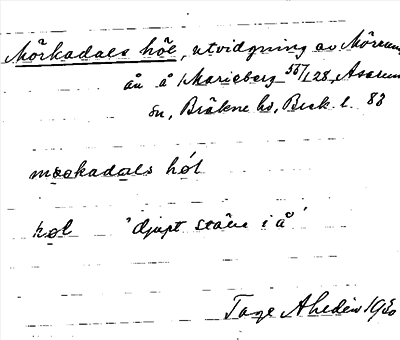 Mörkadals höl, utvidgning av Mörrums
ån å Marieberg 55/128, Asarum
sn, Bräkne hd, Blek. l. 83
mœrkadals hól
hœl "djupt ställe i å"
Tage Ahldén 1930